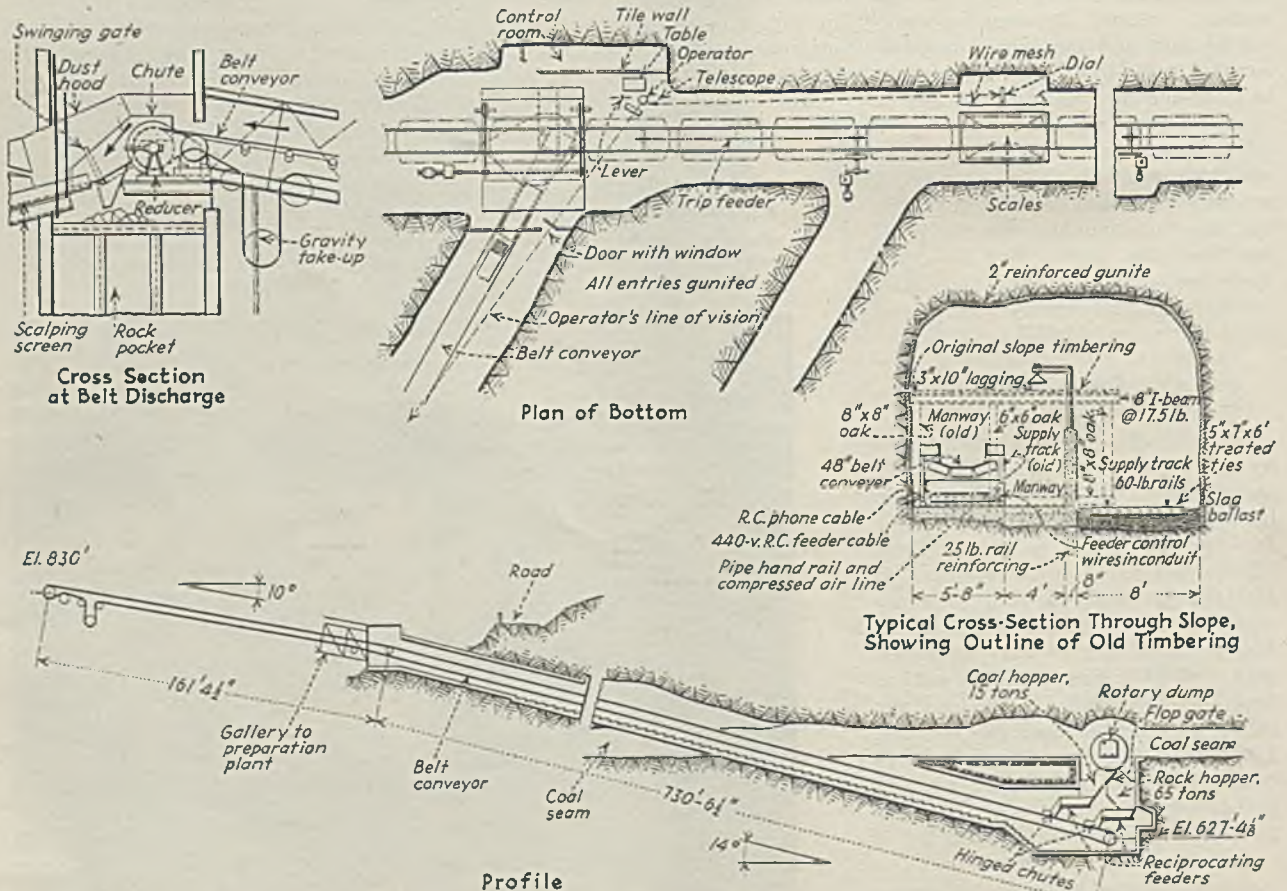 Swinging gate
Dust
hood
Chute
Belt
conveyor
Reducer
Gravity
take-up
Scalping
screen
Rock
pocket
Cross Section
at Belt Discharge
Control
room
Tile wall
Table
Operator
Telescope
Wire mesh
Dial
Lever
Trip feeder
Scales
Door with window
All entries gunited
Operator's line of vision
Belt conveyor
Plan of Bottom
2" reinforced gunite
Original slope timbering
3"x10" lagging
8" I-beam
@ 17.5 lb.
8"x8"
oak
Manway
(old)
6"x6" oak
Supply
track
(old)
8"x8" oak
5"x7"x6'
treated
ties
48" belt
conveyer
Manway
Supply track
60-lb. rails
Slag
ballast
R.C. phone cable
440-v. R.C. feeder cable
Pipe hand rail and
compressed air line
25 lb. rail
reinforcing
Feeder control
wires in conduit
5'-8"
4'
8"
8'
Typical Cross-Section Through Slope,
Showing Outline of Old Timbering
El. 830'
10°
Road
161'4½"
Gallery to
preparation
plant
Belt
conveyor
Coal
seam
730'-6½"
14°
Coal hopper,
15 tons
Rotary dump
Flop gate
Coal seam
Rock hopper,
65 tons
El. 627'-4⅛"
Hinged chutes
Reciprocating
feeders
Profile